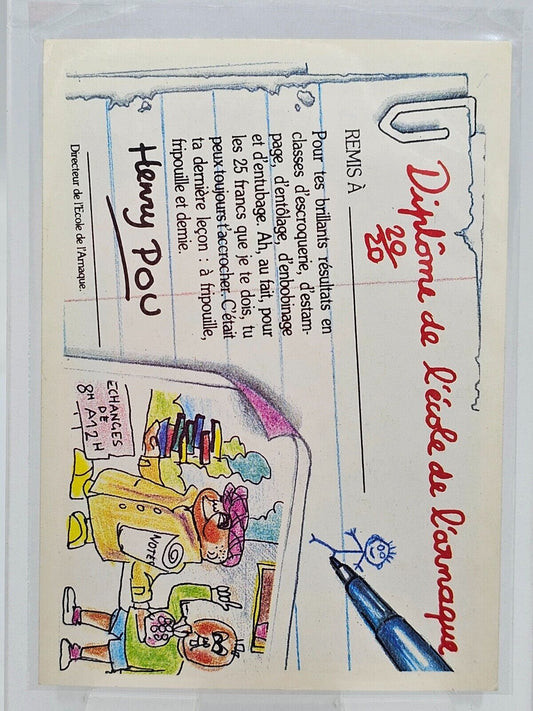 Diplôme de l'école de l'arnaque
20
20
REMIS À
Pour tes brillants résultats en
classes d'escroquerie, d'estam-
page, d'entôlage, d'embobinage
et d'entubage. Ah, au fait, pour
les 25 francs que je te dois, tu
peux toujours t'accrocher. C'était
ta dernière leçon : à fripouille,
fripouille et demie.
Henry POU
Directeur de l'École de l'Arnaque.
ECHANGES
DE
8H A 12H
NOTE